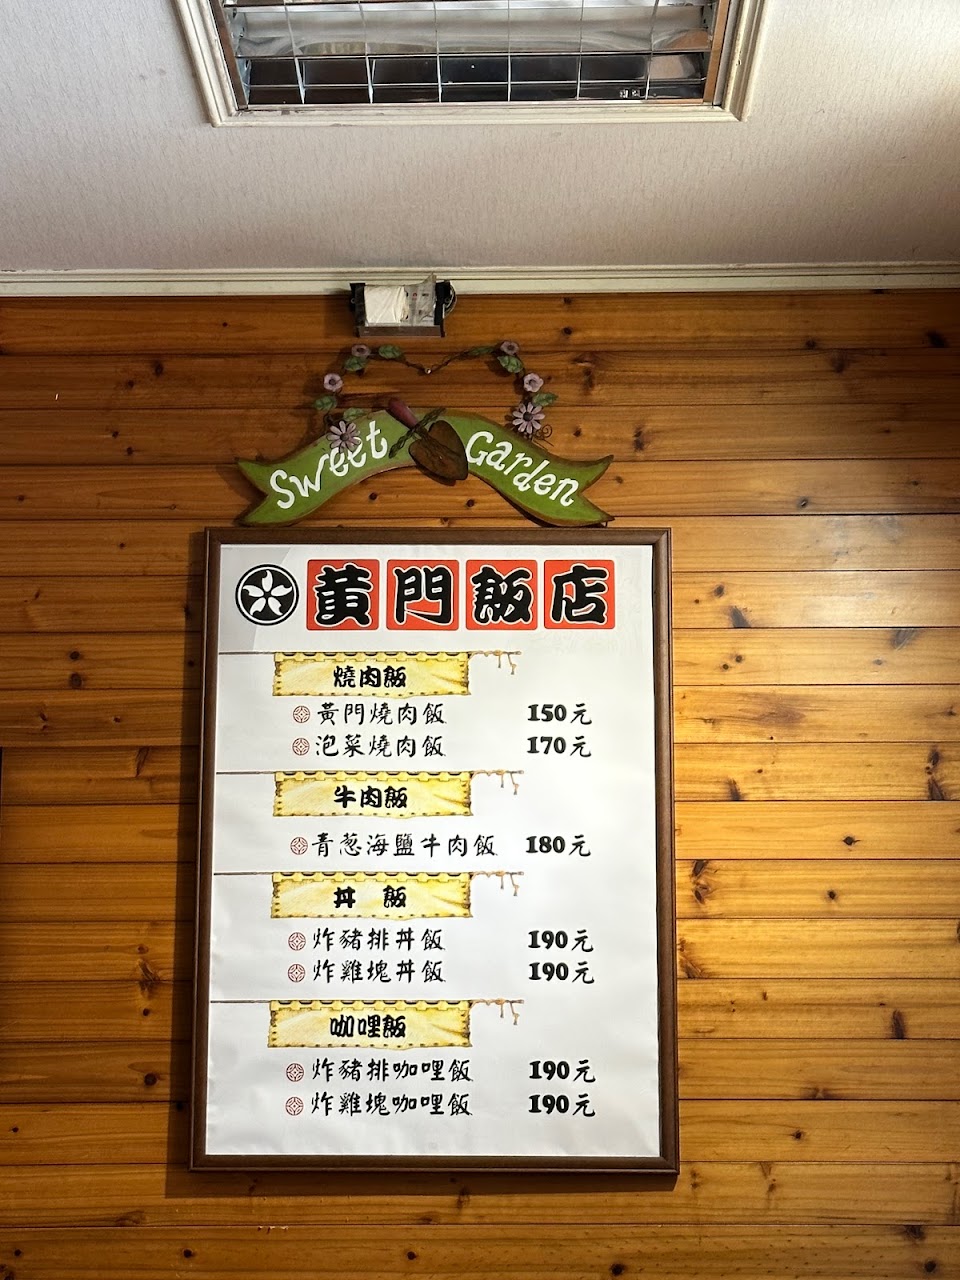 Sweet Garden
黃門飯店
燒肉飯
黃門燒肉飯 150元
泡菜燒肉飯 170元
牛肉飯
青蔥海鹽牛肉飯 180元
丼 飯
炸豬排丼飯 190元
炸雞塊丼飯 190元
咖哩飯
炸豬排咖哩飯 190元
炸雞塊咖哩飯 190元